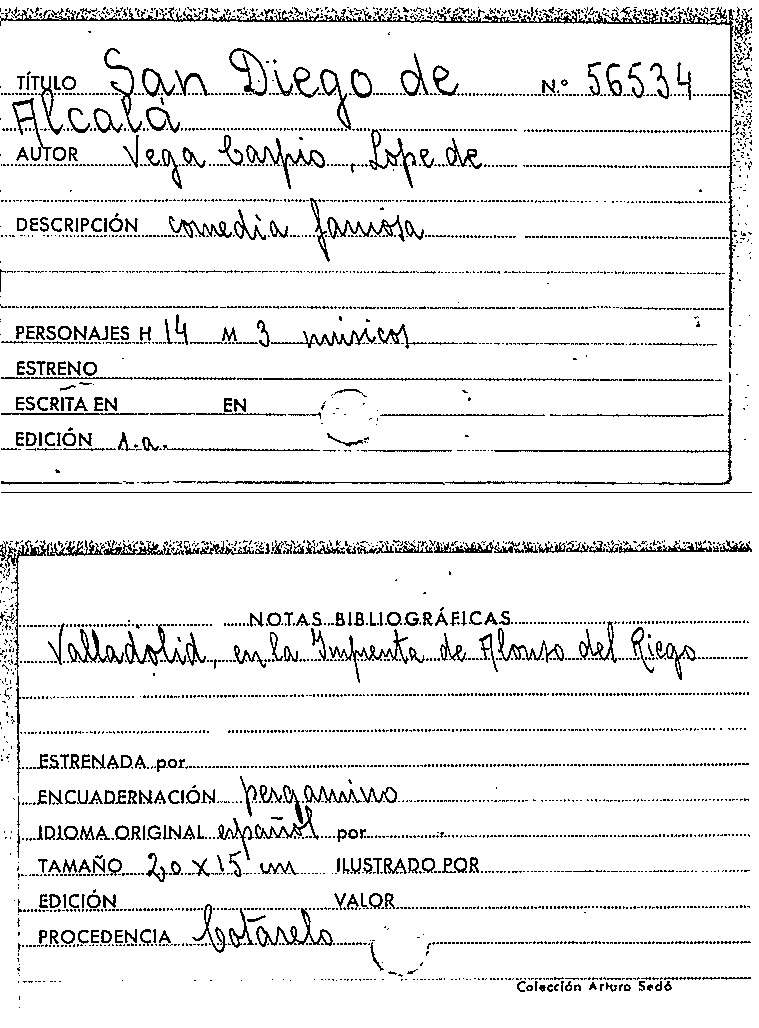 TÍTULO San Diego de Nº 56534
Alcalá
AUTOR Vega Carpio, Lope de
DESCRIPCIÓN comedia famosa
PERSONAJES H 14 M 3 músicos
ESTRENO
ESCRITA EN EN
EDICIÓN s.a.
NOTAS BIBLIOGRÁFICAS
Valladolid, en la Imprenta de Alonso del Riego
ESTRENADA por
ENCUADERNACIÓN pergamino
IDIOMA ORIGINAL español por
TAMAÑO 20 x 15 cm ILUSTRADO POR
EDICIÓN VALOR
PROCEDENCIA Cotarelo
Colección Arturo Sedó